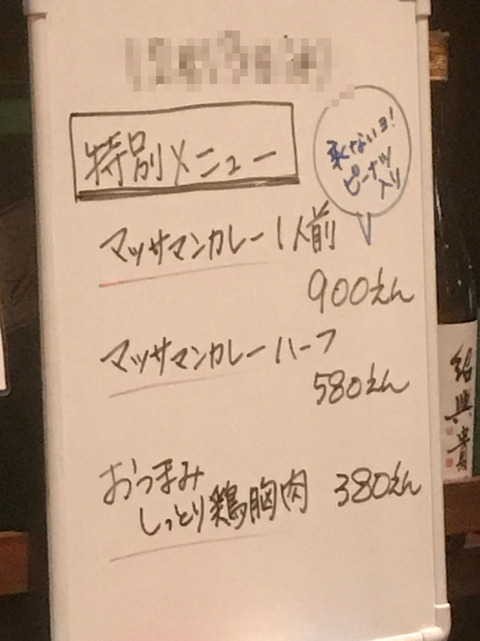 特別メニュー
辛くないヨ!
ピーナツ
入り
マッサマンカレー1人前
900えん
マッサマンカレーハーフ
580えん
おつまみ
しっとり鶏胸肉 380えん
紹興貴